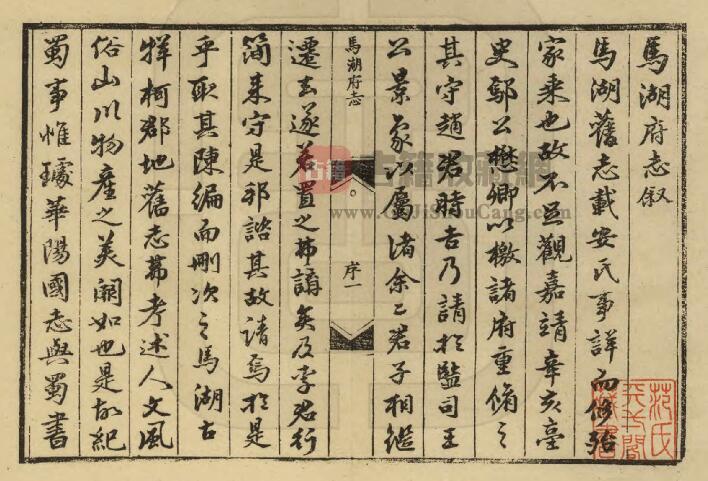 馬湖府志敘
馬湖舊志載安氏事詳而侈殆
家乘也故不足觀嘉靖辛亥臺
史鄢公懋卿以檄諸府重脩之
其守趙君時吉乃請於監司王
公景象以屬渚余二君子相繼
遷去遂若置之弗講矣及李君行
簡来守是邪諮其故請焉於是
乎取其陳編而刪次之馬湖古
牂柯郡地舊志弗考述人文風
俗山川物產之美闕如也是故紀
蜀事惟璩華陽國志與蜀書
馬湖府志
序一
古籍
古籍收藏網
www.GuJiShouCang.com
范氏
天一閣
藏書